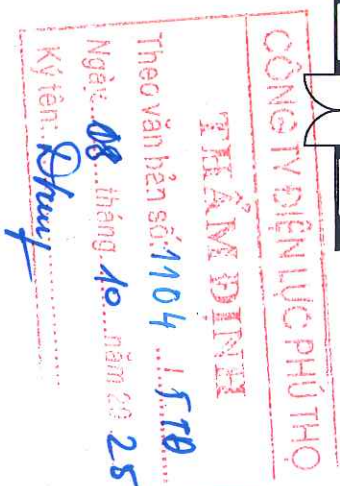 CÔNG TY ĐIỆN LỰC PHÚ THỌ
THẨM ĐỊNH
Theo văn bản số: 1104 /
Ngày 08 tháng 10 năm 20 25
Ký tên: